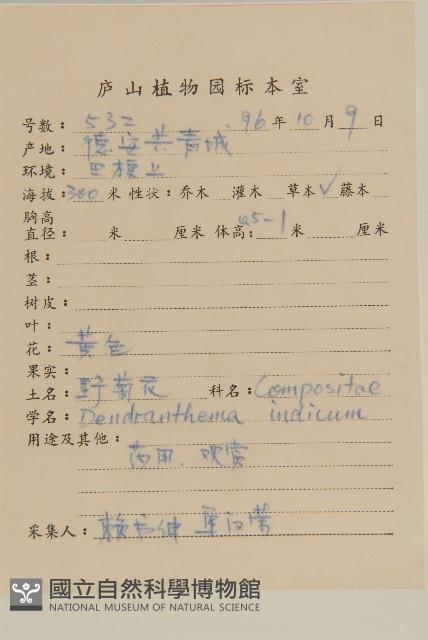 庐山植物园标本室
号数: 532 96年10月9日
产地: 德安共青城
环境: 田梗上
海拔: 300米 性状: 乔木 灌木 草本✓ 藤本
胸高
直径: 米 厘米 体高: 45-1米 厘米
根:
茎:
树皮:
叶:
花: 黄色
果实:
土名: 野菊花 科名: Compositae
学名: Dendranthema indicum
用途及其他:
药用、观赏
采集人: 赖书绅
國立自然科學博物館
NATIONAL MUSEUM OF NATURAL SCIENCE